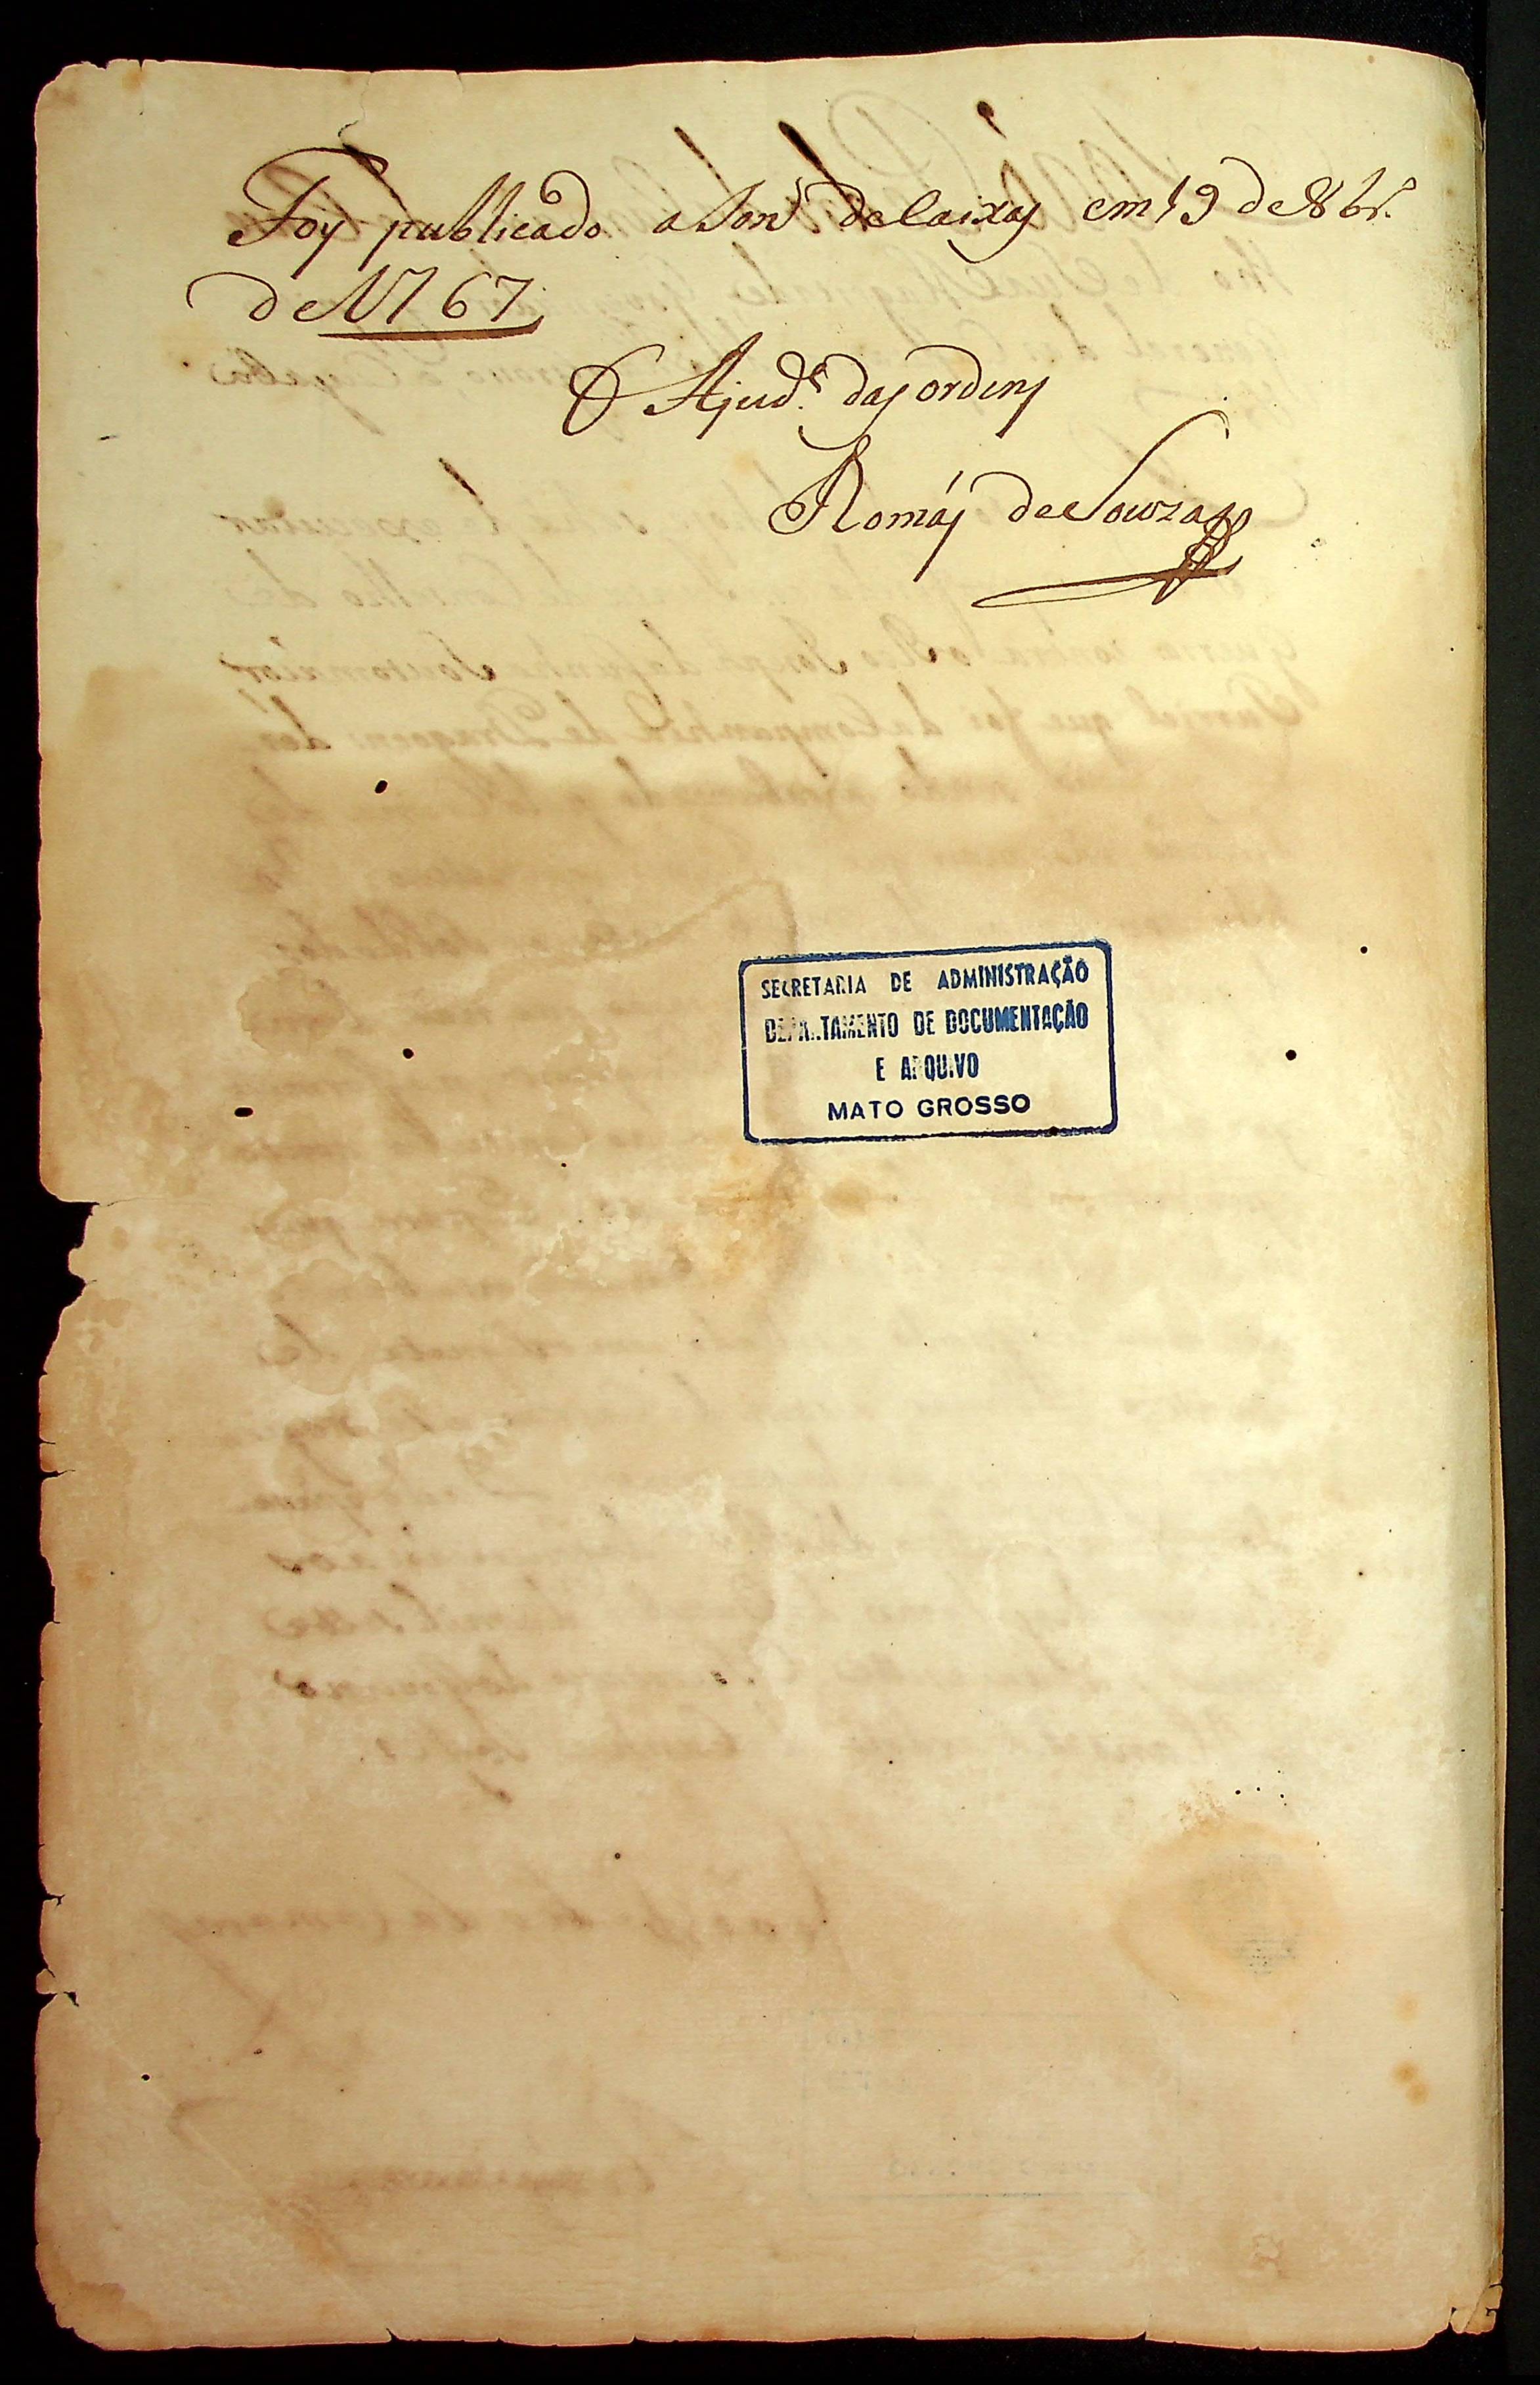 Foy publicado a Son de Caixas em 19 de 8br.º
de 1767
O Ajud.e das ordens
Romão de Souza
SECRETARIA DE ADMINISTRAÇÃO
DEPARTAMENTO DE DOCUMENTAÇÃO
E ARQUIVO
MATO GROSSO